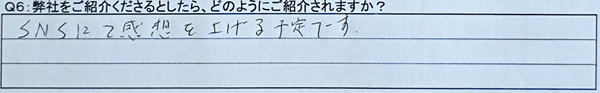 Q6:弊社をご紹介くださるとしたら、どのようにご紹介されますか?
SNSにて感想を上げる予定です。